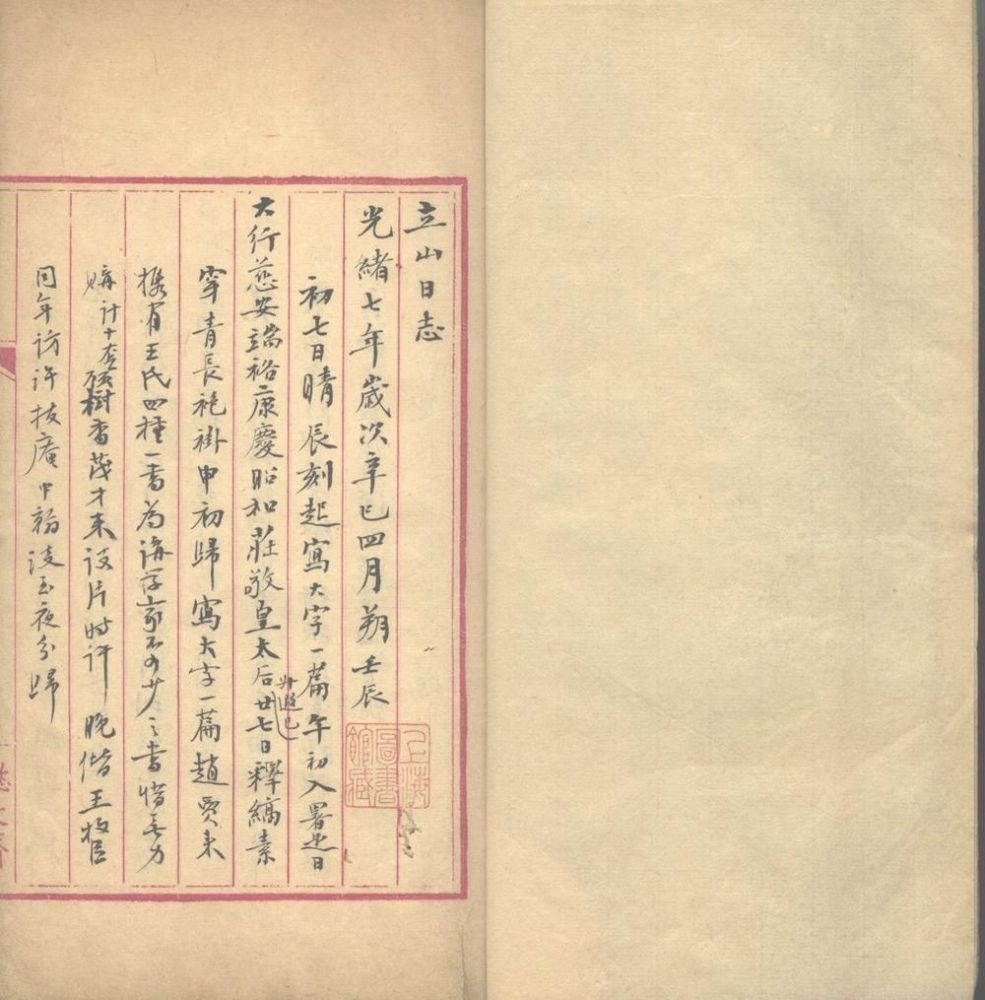 立山日志
光緒七年歲次辛巳四月朔壬辰
初七日晴辰刻起寫大字一篇午初入署是日
大行慈安端裕康慶昭和莊敬皇太后升遐已廿七日釋縞素
穿青長袍褂申初歸寫大字一篇趙賈來
攜有王氏四種一書為講學家不可少之書惜無力
購計十套碩樹香茂才來談片時許晚偕王牧臣
同年訪許拔庵中翰談至夜分歸
上海
圖書
館藏